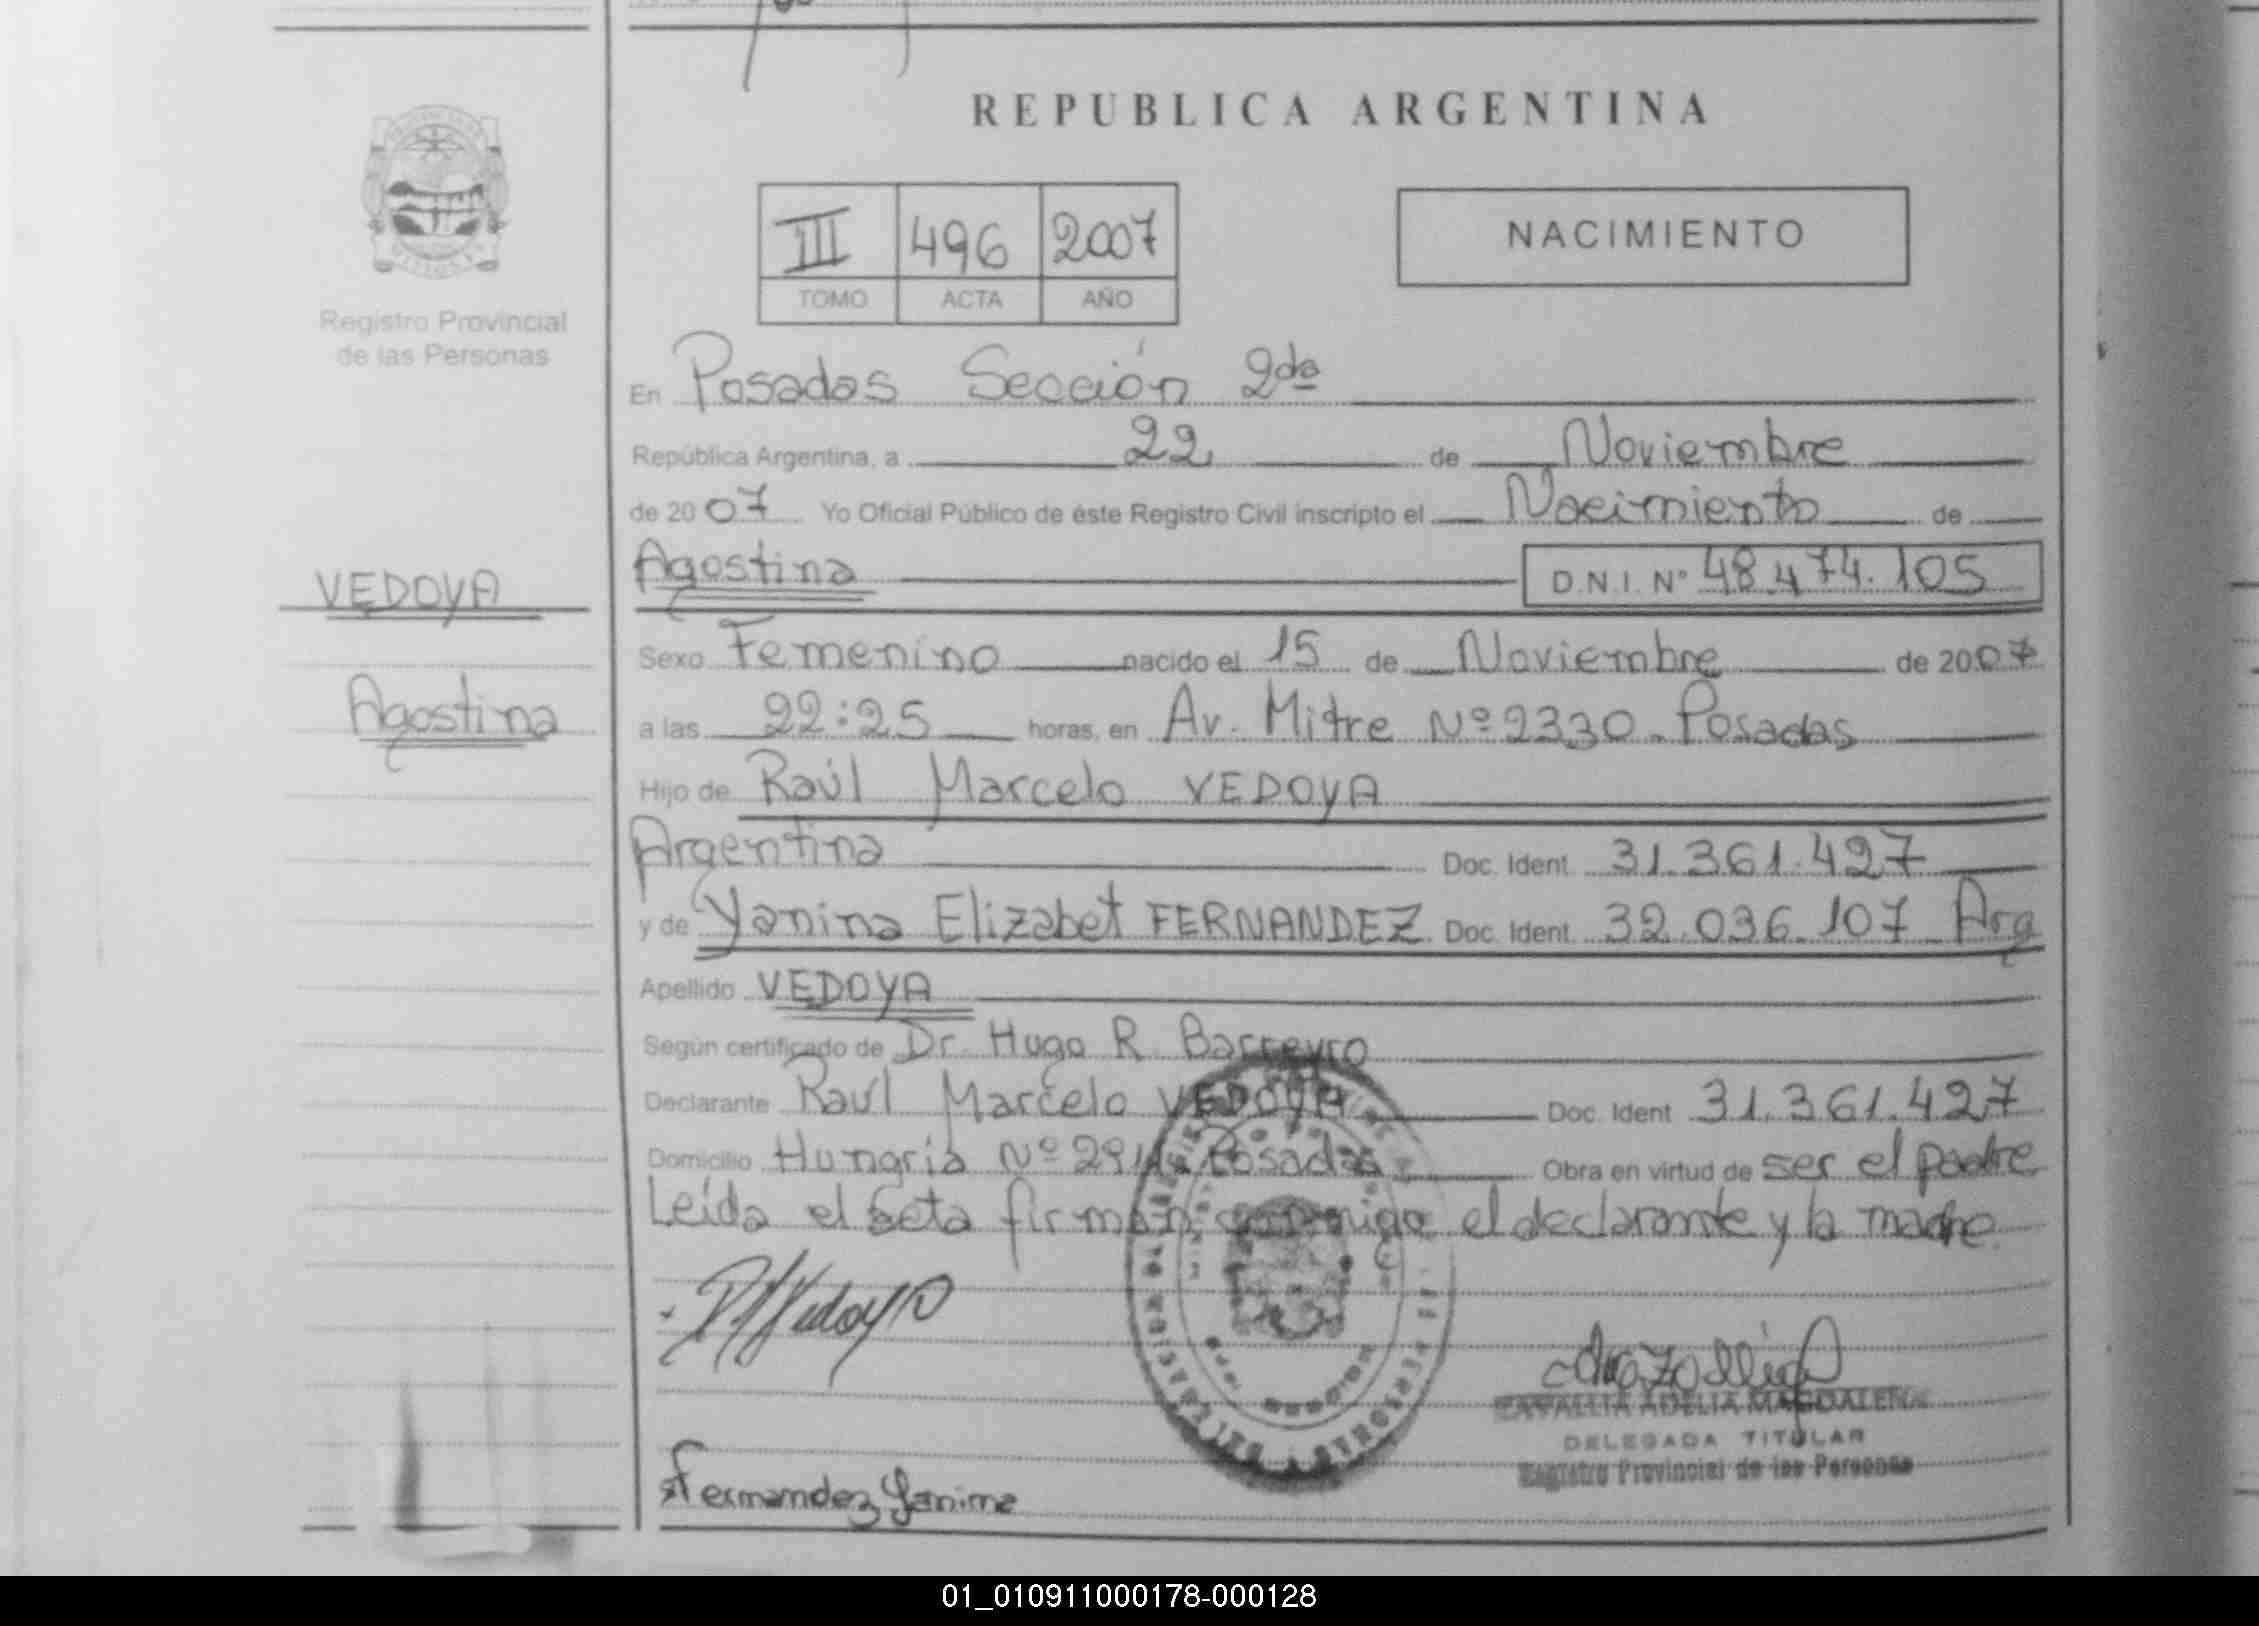 REPUBLICA ARGENTINA
III 496 2007
TOMO ACTA AÑO
NACIMIENTO
Registro Provincial
de las Personas
En Posadas Sección 2da
República Argentina, a 22 de Noviembre
de 2007 Yo Oficial Público de éste Registro Civil inscripto el Nacimiento de
VEDOYA
Agostina D.N.I. Nº 48.474.105
Sexo Femenino nacido el 15 de Noviembre de 2007
Agostina
a las 22:25 horas, en Av. Mitre Nº 2330 - Posadas
Hijo de Raúl Marcelo VEDOYA
Argentina Doc. Ident. 31.361.427
y de Yanina Elizabet FERNANDEZ Doc. Ident. 32.036.107 Arg
Apellido VEDOYA
Según certificado de Dr. Hugo R. Barreyro
Declarante Raúl Marcelo VEDOYA Doc. Ident 31.361.427
Domicilio Hungría Nº Posadas Obra en virtud de ser el padre
Leída el acta firman conmigo el declarante y la madre.
Vedoya
ZAVALLIA ADELIA MAGDALENA
DELEGADA TITULAR
Registro Provincial de las Personas
Fernandez Yanina
01_010911000178-000128